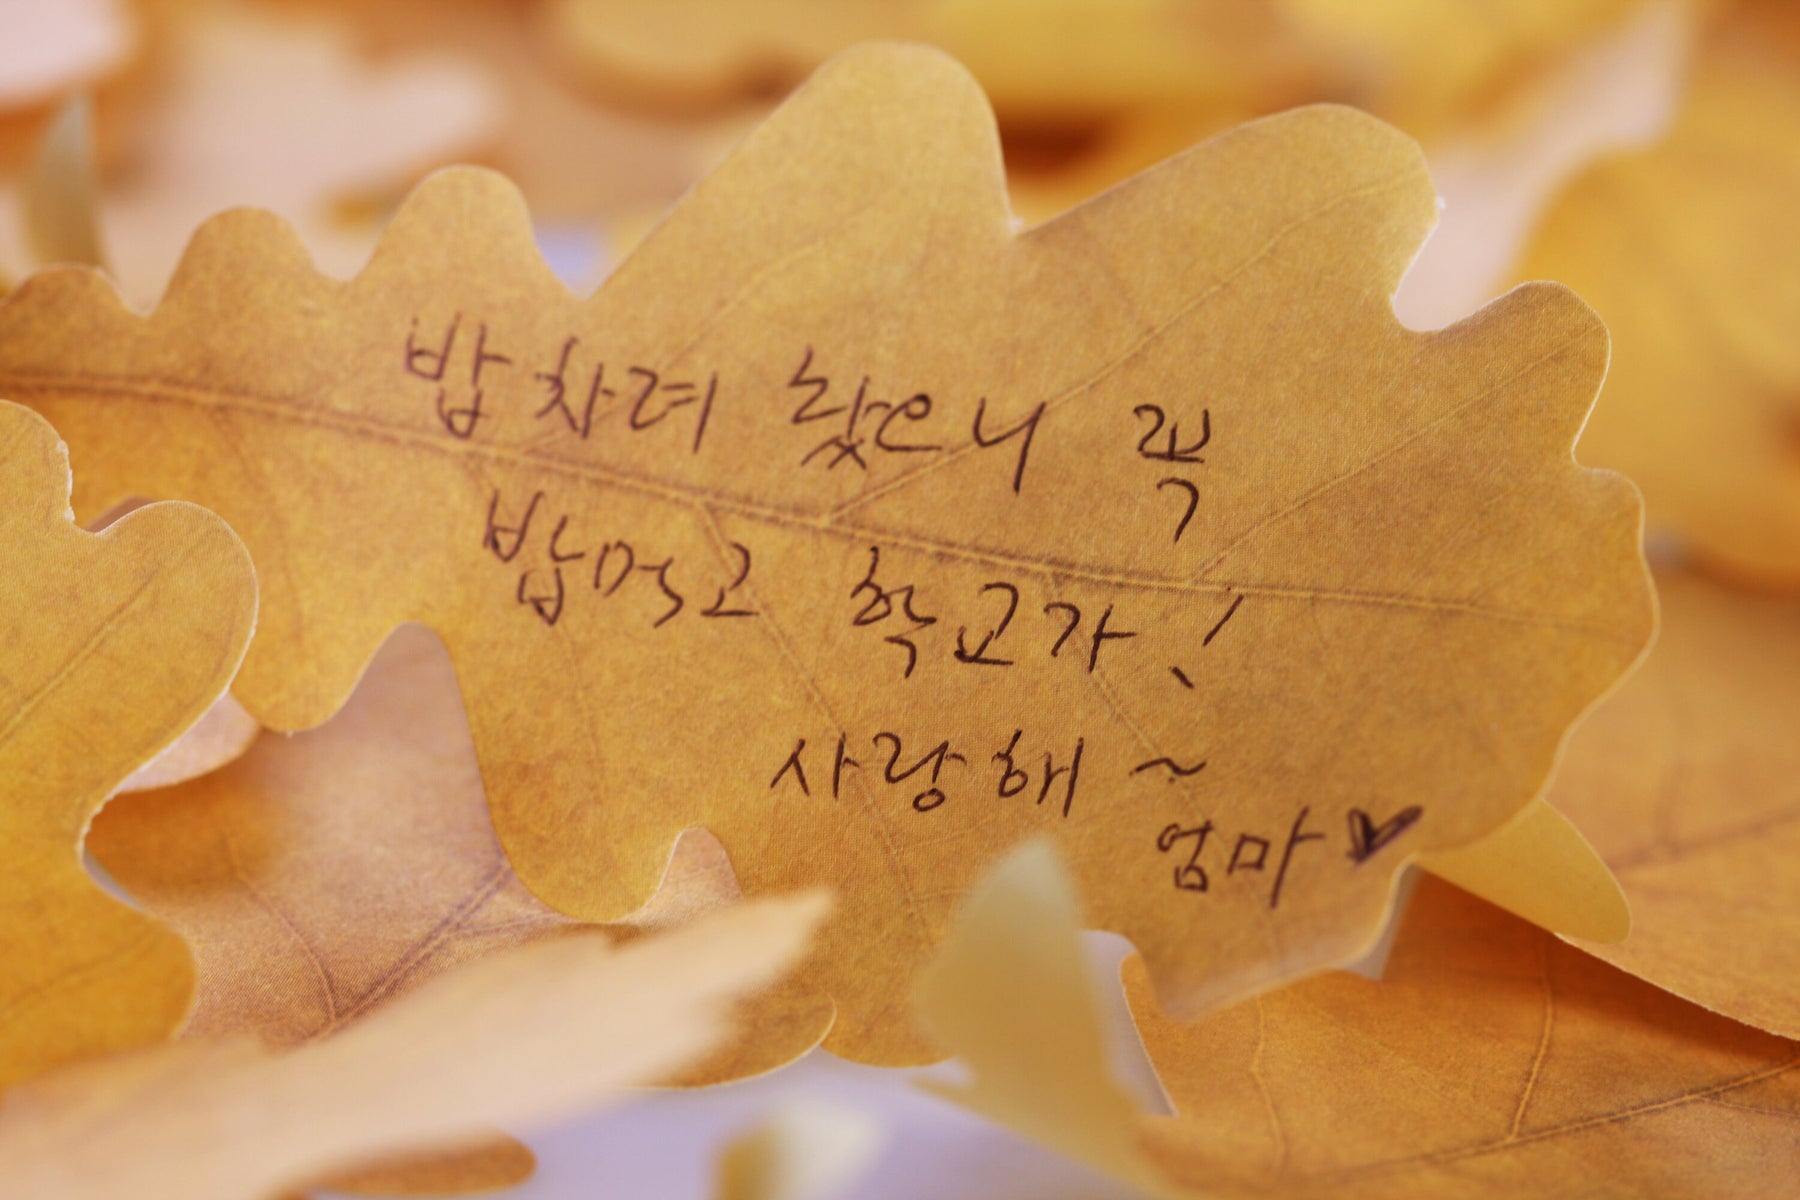 밥 차려 놨으니 꼭
밥먹고 학교가!
사랑해~
엄마♥